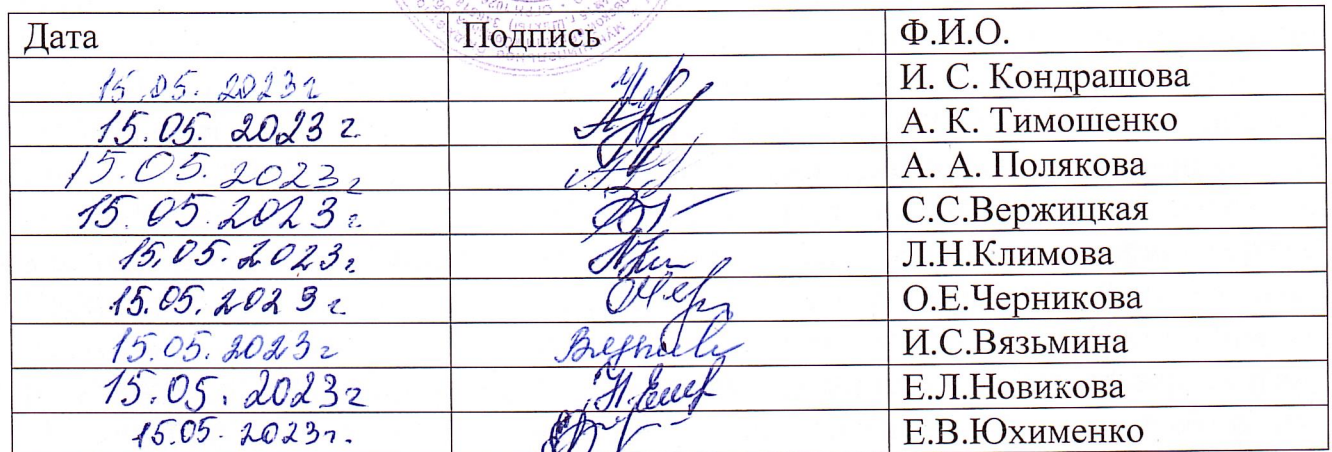 Дата Подпись Ф.И.О.
15.05.2023г И. С. Кондрашова
15.05.2023 г. А. К. Тимошенко
15.05.2023г А. А. Полякова
15.05.2023г. С.С.Вержицкая
15.05.2023г. Л.Н.Климова
15.05.2023 г. О.Е.Черникова
15.05.2023г И.С.Вязьмина
15.05.2023г Е.Л.Новикова
15.05.2023г. Е.В.Юхименко